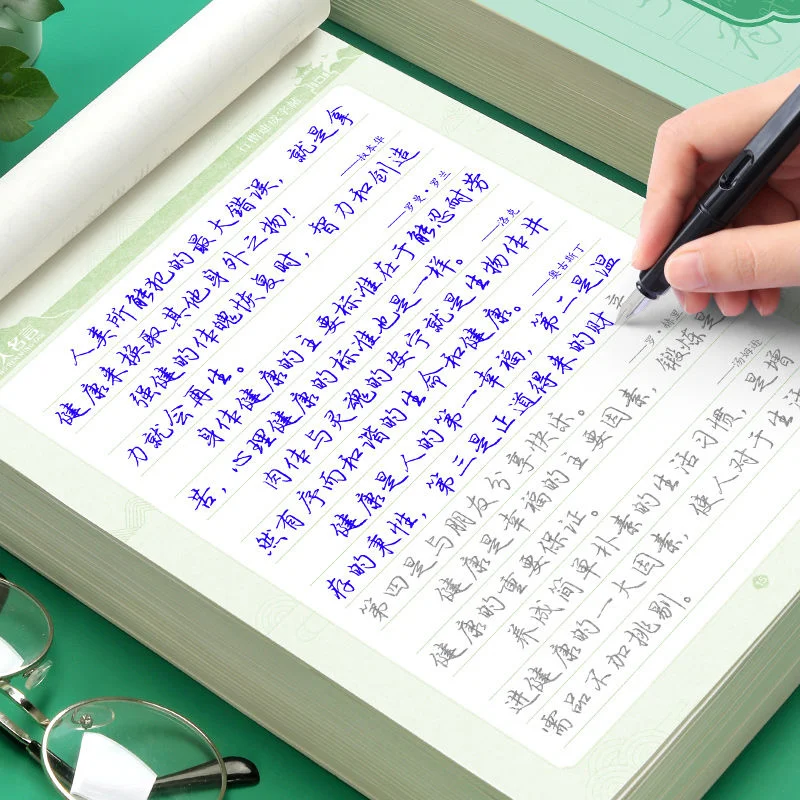 行楷速成字帖
人名言
人类所能犯的最大错误，就是拿
健康来换取其他身外之物！ ——叔本华
强健的体魄恢复时，智力和创造
力就会再生。 ——罗曼·罗兰
身体健康的主要标准在于能忍耐劳
苦，心理健康的标准也是一样。 ——洛克
肉体与灵魂的安宁就是生物体井
然有序而和谐的生命和健康。 ——奥古斯丁
健康是人的第一幸福，第二是温
存的秉性，第三是正道得来的财
第四是与朋友分享快乐。 ——罗·赫里
健康是幸福的主要因素，锻炼是
健康的重要保证。 ——汤姆逊
养成简单朴素的生活习惯，是增
进健康的一大因素，使人对于生活
需品不加挑剔。
15